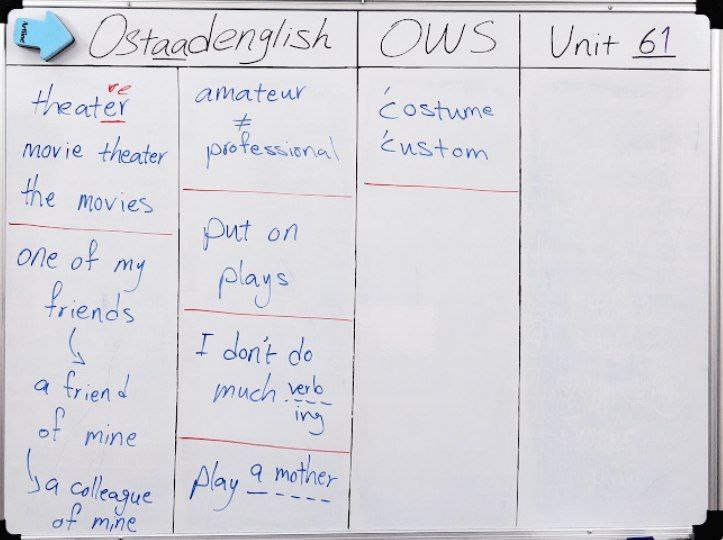 Ostaadenglish OWS Unit 61
re
theater
movie theater
the movies
one of my
friends
a friend
of mine
a colleague
of mine
amateur
≠
professional
put on
plays
I don't do
much verb
ing
play a mother
costume
custom